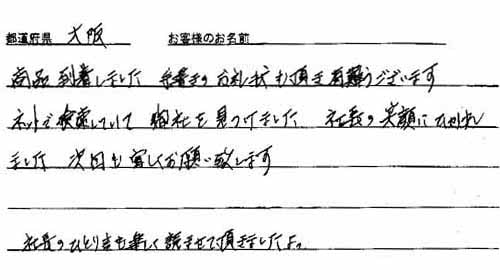 都道府県 大阪 お客様のお名前
商品到着しました 手書きのお礼状も頂き有難うございます
ネットで検索していて 御社を見つけました 社長の笑顔にひかれ
ました 次回も宜しくお願い致します
社長のひとり言も楽しく読ませて頂きましたよ。